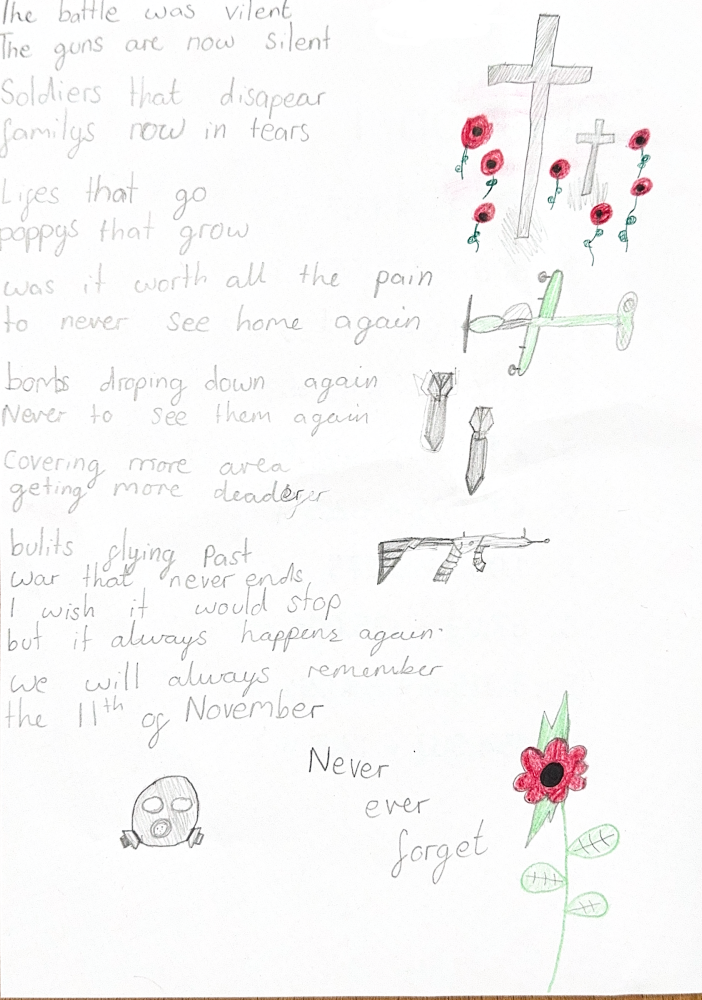 The battle was vilent
The guns are now silent
Soldiers that disapear
familys now in tears
Lifes that go
poppys that grow
was it worth all the pain
to never see home again
bombs droping down again
Never to see them again
Covering more area
geting more deaderer
bulits flying past
war that never ends
I wish it would stop
but it always happens again.
we will always remember
the 11th of November
Never
ever
forget